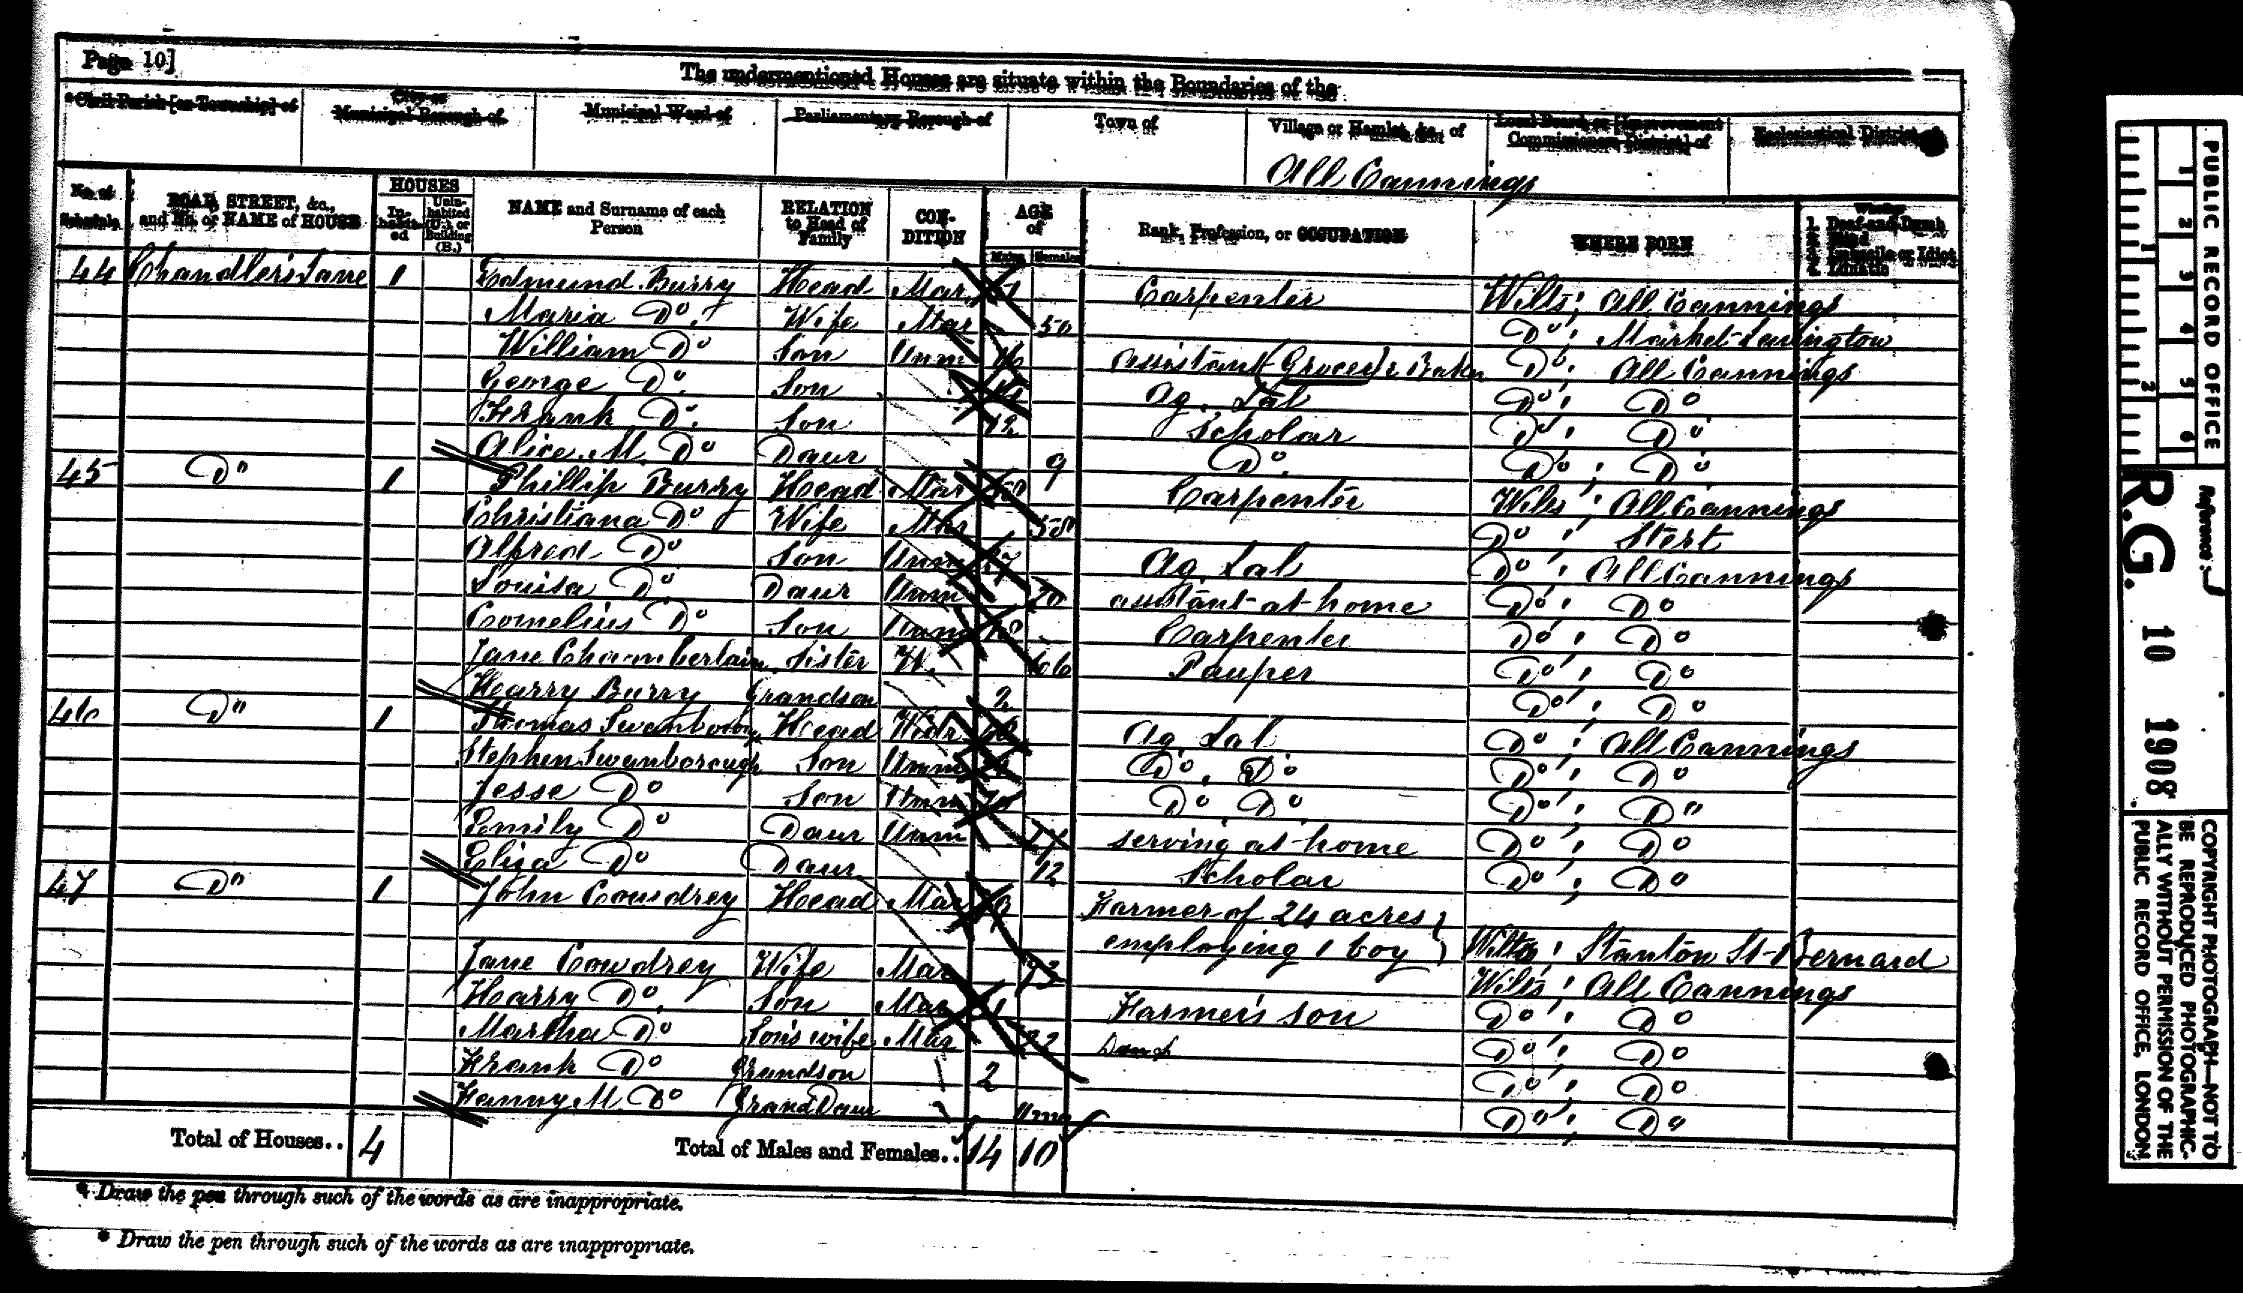 Page 10]
The undermentioned Houses are situate within the Boundaries of the
* Civil Parish [or Township] of City or Municipal Borough of Municipal Ward of Parliamentary Borough of Town of Village or Hamlet, &c., of Local Board, or [Improvement Commissioners District] of Ecclesiastical District of
All Cannings
No. of Schedule ROAD, STREET, &c., and No. or NAME of HOUSE HOUSES In-habit-ed Unin-habited (U.), or Building (B.) NAME and Surname of each Person RELATION to Head of Family CON-DITION AGE of Males Females Rank, Profession, or OCCUPATION WHERE BORN Whether 1. Deaf-and-Dumb 2. Blind 3. Imbecile or Idiot 4. Lunatic
44 Chandler's Lane 1 Edmund Burry Head Mar Carpenter Wilts; All Cannings
Maria Do. Wife Mar 50 Do; Market Lavington
William Do Son Unm 16 Assistant (Grocer & Baker Do; All Cannings
George Do. Son Ag. Lab Do; Do
Frank Do. Son 12 Scholar Do; Do
Alice M. Do Daur 9 Do. Do; Do
45 Do 1 Phillip Burry Head Mar Carpenter Wilts; All Cannings
Christiana Do Wife Mar 58 Do; Stert
Alfred Do Son Unm Ag Lab Do; All Cannings
Louisa Do. Daur Unm 20 assistant-at-home Do; Do
Cornelius Do Son Unm Carpenter Do; Do
Jane Chamberlain Sister W. 66 Pauper Do; Do
Harry Burry Grandson 2 Do; Do
46 Do 1 Thomas Swanborough Head Widr Ag. Lab Do; All Cannings
Stephen Swanborough Son Unm Do. Do Do; Do
Jesse Do Son Unm Do. Do. Do; Do
Emily Do Daur Unm serving at-home Do; Do
Eliza Do Daur 12 Scholar Do; Do
47 Do 1 John Cowdrey Head Mar Farmer of 24 acres
employing 1 boy Wilts; Stanton St-Bernard
Jane Cowdrey Wife Mar 73 Wilts; All Cannings
Harry Do. Son Mar Farmer's son Do; Do
Martha Do Son's wife Mar 22 Do; Do
Frank Do Grandson 2 Do; Do
Fanny M. Do Grand Daur Do; Do
Total of Houses.. 4 Total of Males and Females.. 14 10
* Draw the pen through such of the words as are inappropriate.
* Draw the pen through such of the words as are inappropriate.
PUBLIC RECORD OFFICE
1 2 3 4 5 6
1 2
Reference:-
R.G. 10 1908
COPYRIGHT PHOTOGRAPH—NOT TO BE REPRODUCED PHOTOGRAPHIC-ALLY WITHOUT PERMISSION OF THE PUBLIC RECORD OFFICE, LONDON